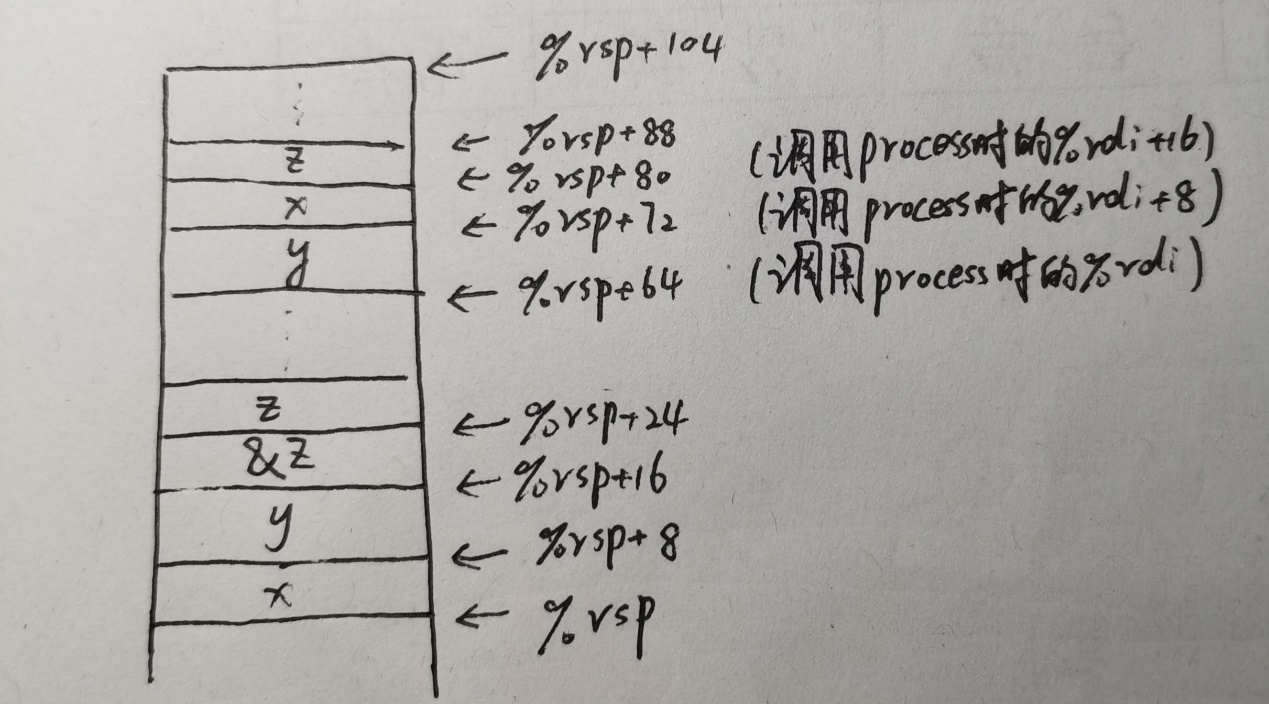 ← %rsp+104
⋮
← %rsp+88
z
← %rsp+80 (调用process时的%rdi+16)
x
← %rsp+72 (调用process时的%rdi+8)
y
← %rsp+64 (调用process时的%rdi)
⋮
z
← %rsp+24
&z
← %rsp+16
y
← %rsp+8
x
← %rsp